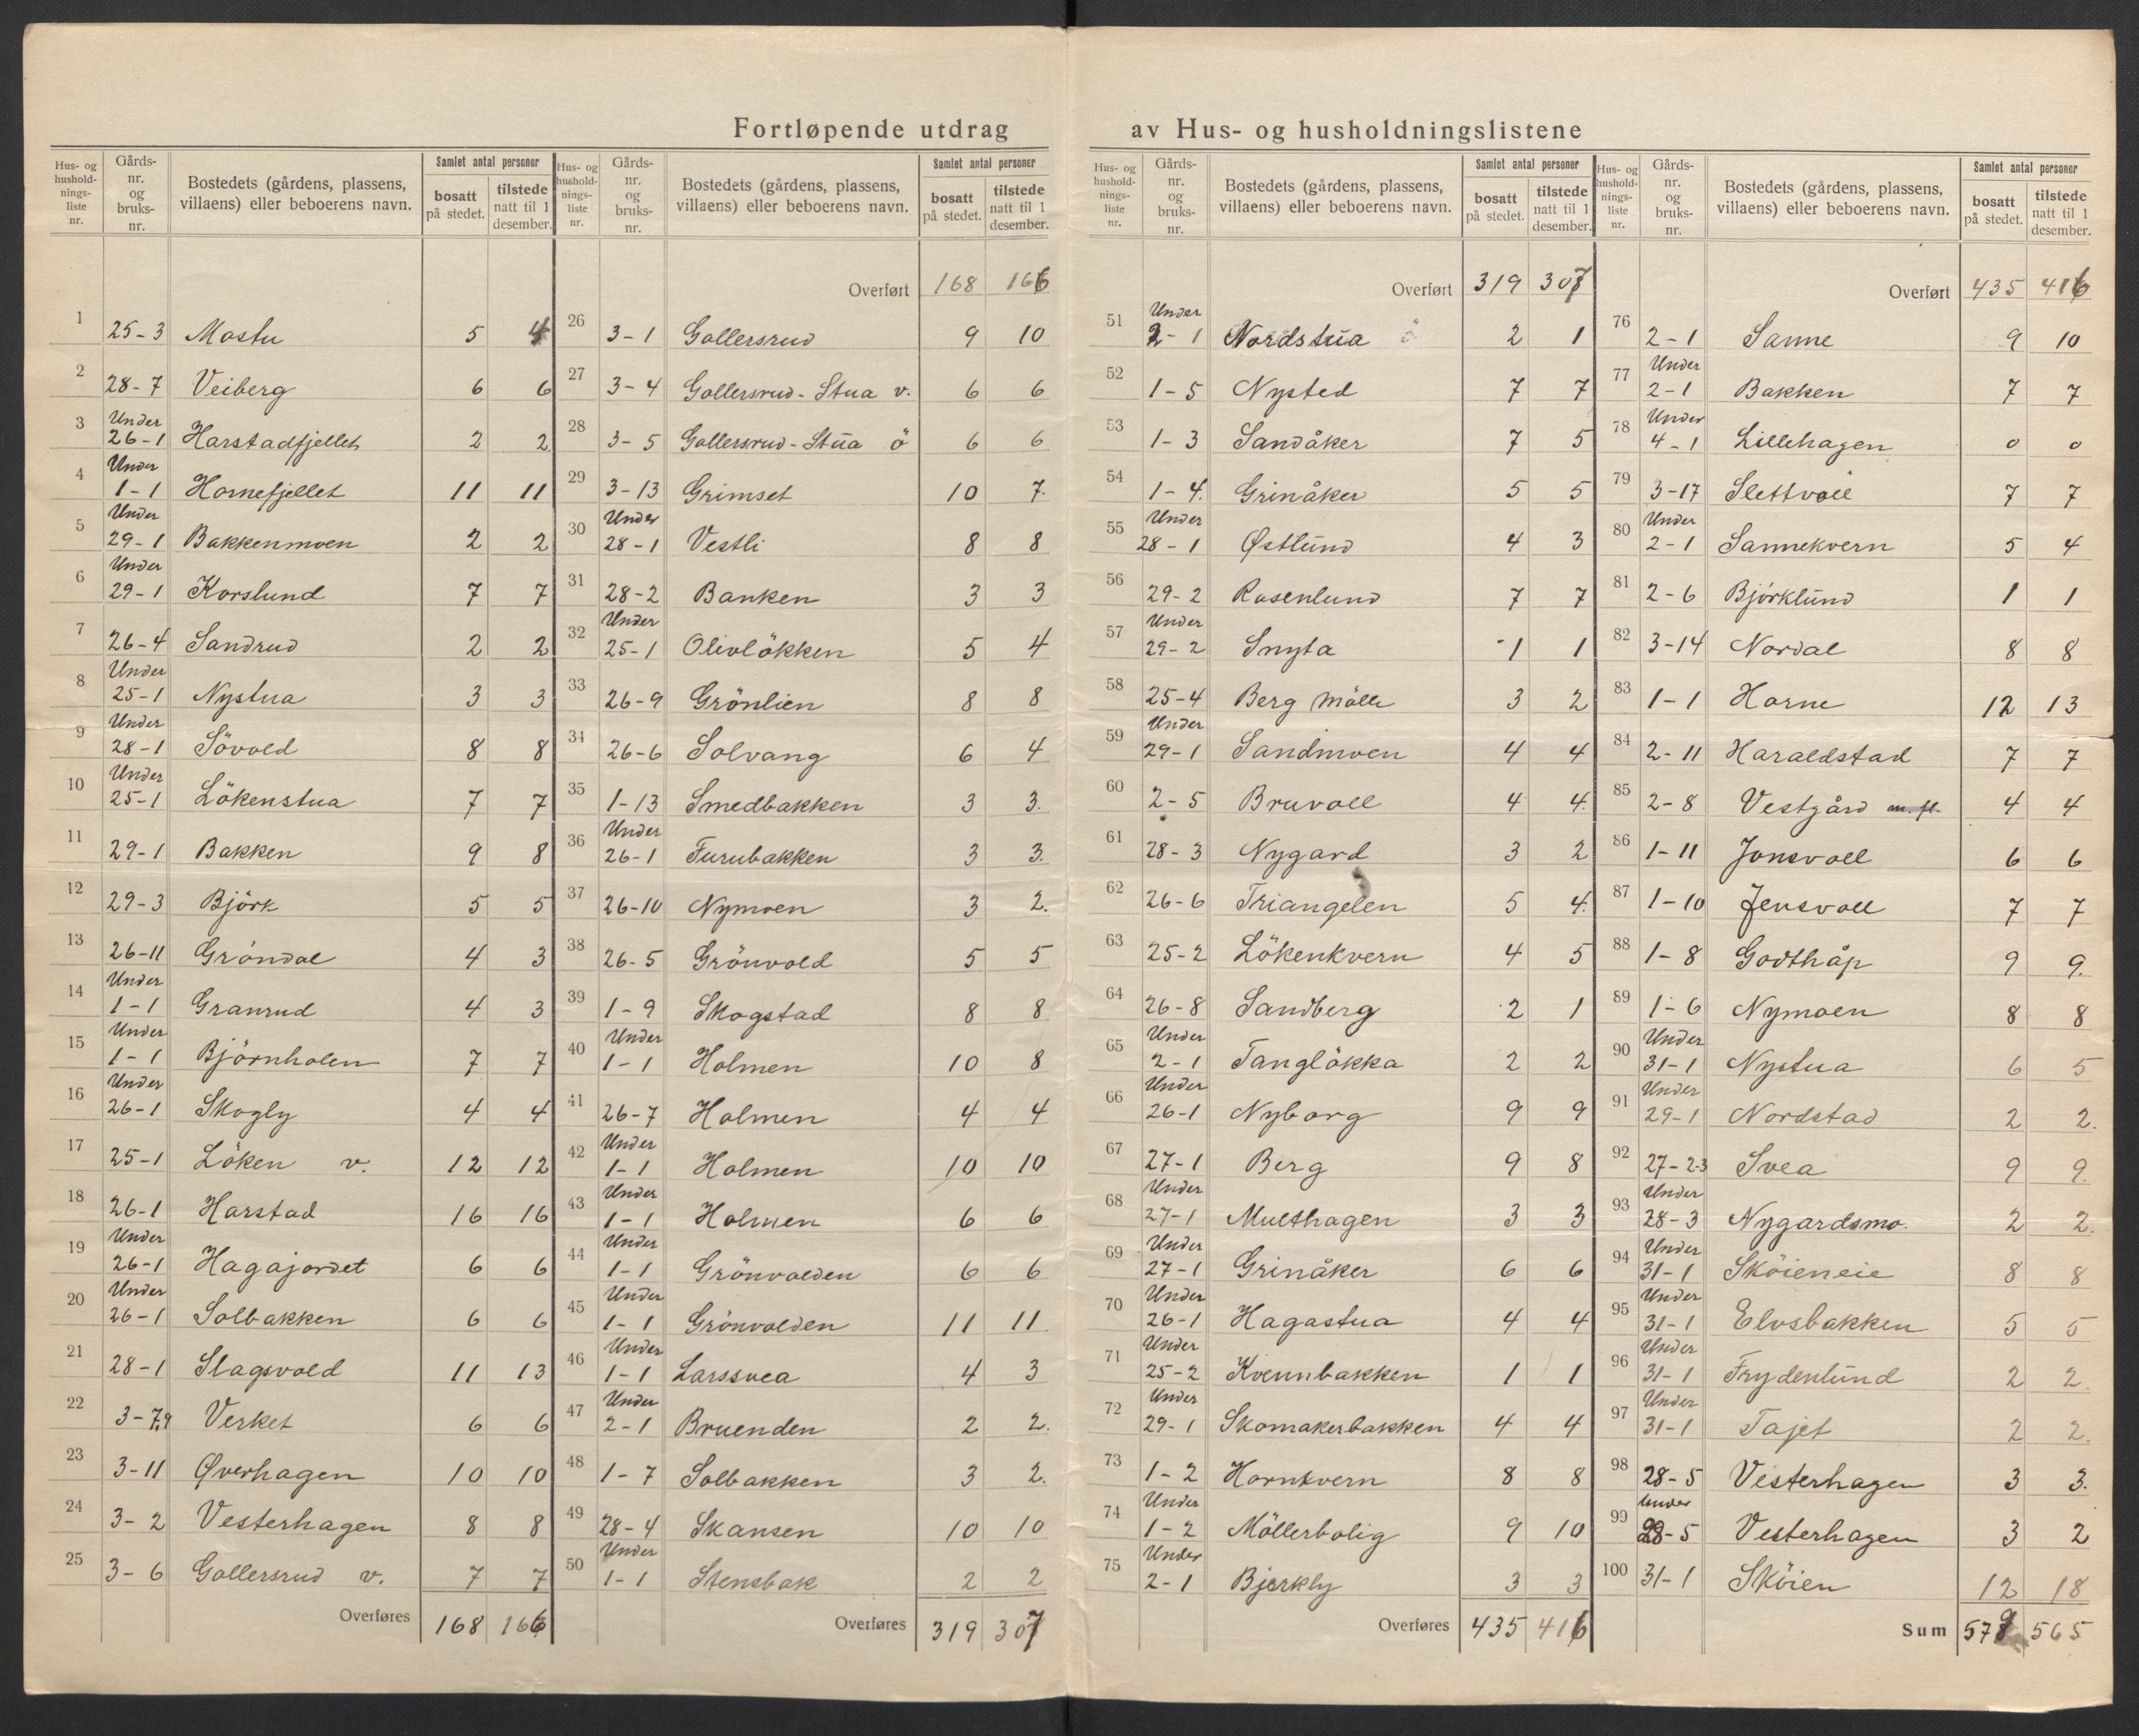 Fortløpende utdrag av Hus- og husholdningslistene
Hus- og husholdningsliste nr. | Gårds-nr. og bruks-nr. | Bostedets (gårdens, plassens, villaens) eller beboerens navn. | Samlet antal personer bosatt på stedet. | tilstede natt til 1 desember.
1 25-3 Mostu 5 4
2 28-7 Veiberg 6 6
3 Under 26-1 Harstadfjellet 2 2
4 Under 1-1 Hornefjellet 11 11
5 Under 29-1 Bakkenmoen 2 2
6 Under 29-1 Korslund 7 7
7 26-4 Sandrud 2 2
8 Under 25-1 Nystua 3 3
9 Under 28-1 Sövold 8 8
10 Under 25-1 Lökenstua 7 7
11 29-1 Bakken 9 8
12 29-3 Björk 5 5
13 26-11 Gröndal 4 3
14 Under 1-1 Granrud 4 3
15 Under 1-1 Björnholen 7 7
16 Under 26-1 Skogly 4 4
17 25-1 Löken v. 12 12
18 26-1 Harstad 16 16
19 Under 26-1 Hagajordet 6 6
20 Under 26-1 Solbakken 6 6
21 28-1 Slagsvold 11 13
22 3-7,9 Verket 6 6
23 3-11 Øverhagen 10 10
24 3-2 Vesterhagen 8 8
25 3-6 Gollersrud v. 7 7
Overføres 168 166
Hus- og husholdningsliste nr. | Gårds-nr. og bruks-nr. | Bostedets (gårdens, plassens, villaens) eller beboerens navn. | Samlet antal personer bosatt på stedet. | tilstede natt til 1 desember.
Overført 168 166
26 3-1 Gollersrud 9 10
27 3-4 Gollersrud-Stua v. 6 6
28 3-5 Gollersrud-Stua ö 6 6
29 3-13 Grimset 10 7.
30 Under 28-1 Vestli 8 8
31 28-2 Banken 3 3
32 Under 25-1 Olivlökken 5 4
33 26-9 Grönlien 8 8
34 26-6 Solvang 6 4
35 1-13 Smedbakken 3 3.
36 Under 26-1 Furubakken 3 3.
37 26-10 Nymoen 3 2.
38 26-5 Grönvold 5 5
39 1-9 Skogstad 8 8
40 Under 1-1 Holmen 10 8
41 26-7 Holmen 4 4
42 Under 1-1 Holmen 10 10
43 Under 1-1 Holmen 6 6
44 Under 1-1 Grönvolden 6 6
45 Under 1-1 Grönvolden 11 11
46 Under 1-1 Larssvea 4 3
47 Under 2-1 Bruenden 2 2.
48 1-7 Solbakken 3 2.
49 28-4 Skansen 10 10
50 Under 1-1 Stensbak 2 2
Overføres 319 307
Hus- og husholdningsliste nr. | Gårds-nr. og bruks-nr. | Bostedets (gårdens, plassens, villaens) eller beboerens navn. | Samlet antal personer bosatt på stedet. | tilstede natt til 1 desember.
Overført 319 307
51 Under 2-1 Nordstua ö 2 1
52 1-5 Nysted 7 7
53 1-3 Sandåker 7 5
54 1-4. Grinåker 5 5
55 Under 28-1 Østlund 4 3
56 29-2 Rosenlund 7 7
57 Under 29-2 Snyta 1 1
58 25-4 Berg Mölle 3 2
59 Under 29-1 Sandmoen 4 4
60 2-5 Bruvoll 4 4.
61 28-3 Nygard 3 2
62 26-6 Triangelen 5 4.
63 25-2 Lökenkvern 4 5
64 26-8 Sandberg 2 1
65 Under 2-1 Tanglökka 2 2
66 Under 26-1 Nyborg 9 9
67 27-1 Berg 9 8
68 Under 27-1 Multhagen 3 3
69 Under 27-1 Grinåker 6 6
70 Under 26-1 Hagastua 4 4
71 Under 25-2 Kvennbakken 1 1
72 Under 29-1 Skomakerbakken 4 4
73 1-2 Hornkvern 8 8
74 Under 1-2 Möllerbolig 9 10
75 Under 2-1 Bjerkly 3 3
Overføres 435 416
Hus- og husholdningsliste nr. | Gårds-nr. og bruks-nr. | Bostedets (gårdens, plassens, villaens) eller beboerens navn. | Samlet antal personer bosatt på stedet. | tilstede natt til 1 desember.
Overført 435 416
76 2-1 Sanne 9 10
77 Under 2-1 Bakken 7 7
78 Under 4-1 Lillehagen 0 0
79 3-17 Slettvoll 7 7
80 Under 2-1 Sannekvern 5 4
81 2-6 Björklund 1 1
82 3-14 Nordal 8 8
83 1-1 Horne 12 13
84 2-11 Haraldstad 7 7
85 2-8 Vestgård m. fl. 4 4
86 1-11 Jonsvoll 6 6
87 1-10 Jensvoll 7 7
88 1-8 Godthåp 9 9.
89 1-6 Nymoen 8 8
90 Under 31-1 Nystua 6 5
91 Under 29-1 Nordstad 2 2.
92 27-2-3 Svea 9 9.
93 Under 28-3 Nygardsmo. 2 2.
94 Under 31-1 Sköieneie 8 8
95 Under 31-1 Elvsbakken 5 5
96 Under 31-1 Frydenlund 2 2.
97 Under 31-1 Tajet 2 2.
98 28-5 Vesterhagen 3 3.
99 Under 28-5 Vesterhagen 3 2
100 31-1 Sköien 12 18
Sum 579 565